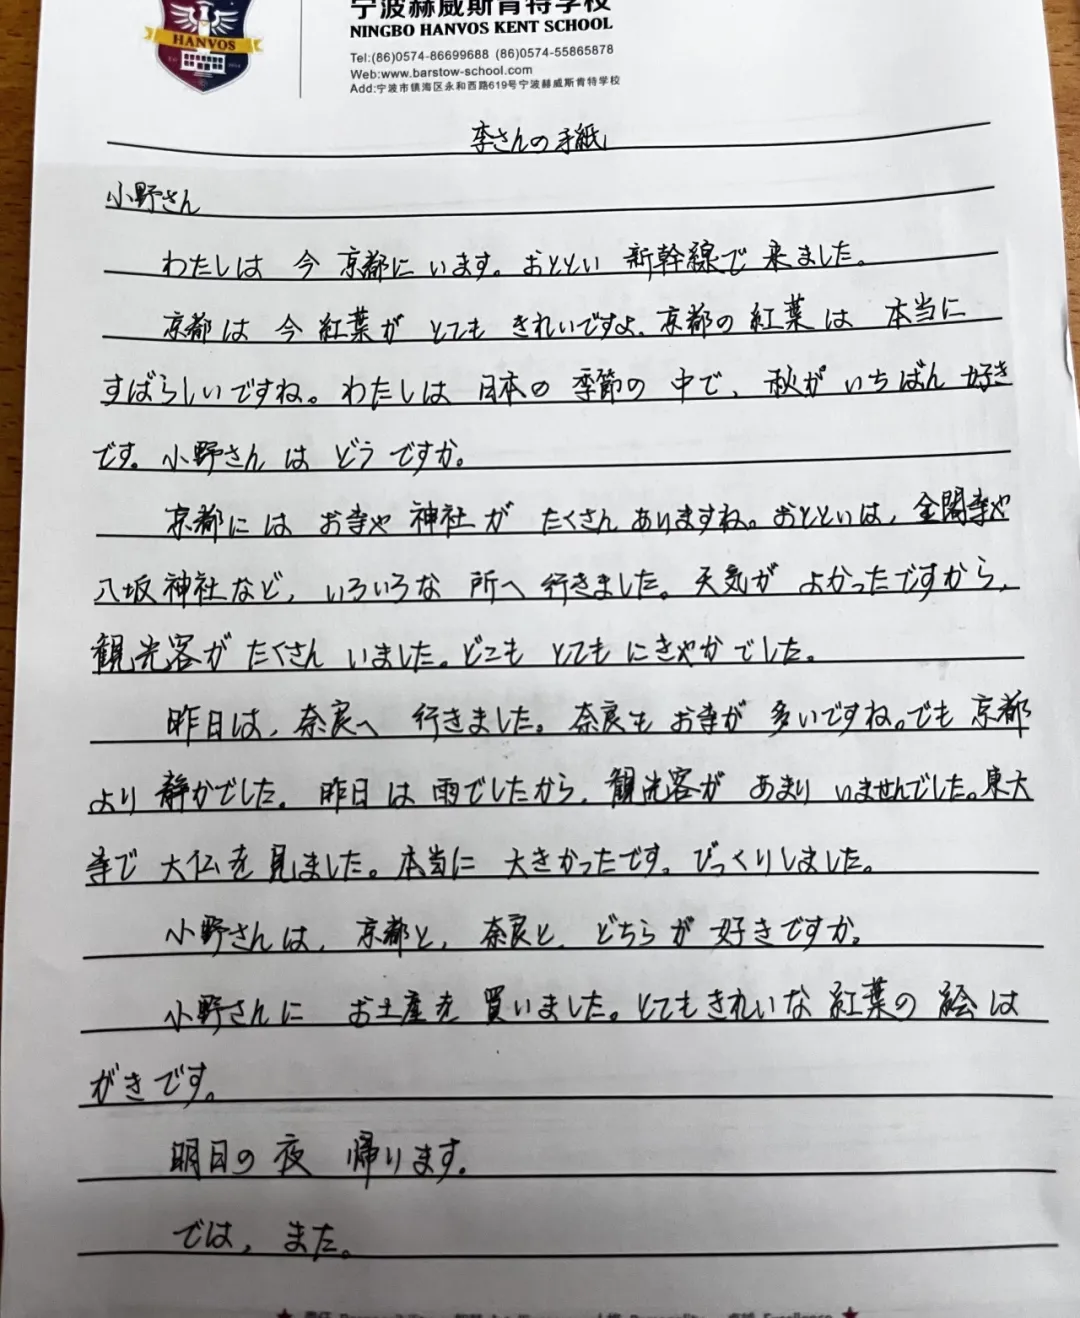 宁波赫威斯肯特学校
NINGBO HANVOS KENT SCHOOL
HANVOS
Tel:(86)0574-86699688 (86)0574-55865878
Web:www.barstow-school.com
Add:宁波市镇海区永和西路619号宁波赫威斯肯特学校
李さんの手紙
小野さん
わたしは 今 京都に います。おととい 新幹線で 来ました。
京都は 今 紅葉が とても きれいですよ。京都の 紅葉は 本当に
すばらしいですね。わたしは 日本の 季節の 中で、秋が いちばん 好き
です。小野さんは どうですか。
京都には お寺や 神社が たくさん ありますね。おとといは、金閣寺や
八坂神社など、いろいろな 所へ 行きました。天気が よかったですから、
観光客が たくさん いました。どこも とても にぎやかでした。
昨日は、奈良へ 行きました。奈良も お寺が 多いですね。でも 京都
より 静かでした。昨日は 雨でしたから、観光客が あまり いませんでした。東大
寺で 大仏を 見ました。本当に 大きかったです。びっくりしました。
小野さんは、京都と、奈良と、どちらが 好きですか。
小野さんに お土産を 買いました。とてもきれいな 紅葉の 絵は
がきです。
明日の 夜 帰ります。
では、また。